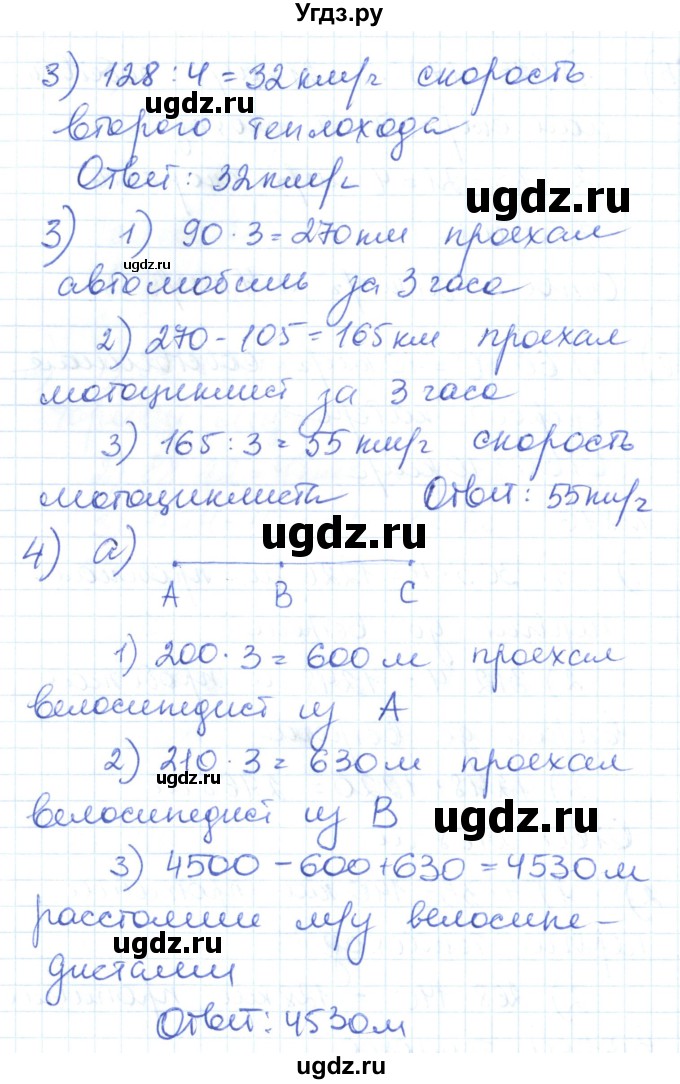 Угдз.ру
3) 128 : 4 = 32 км/ч скорость
ugdz.ru
второго теплохода
Ответ: 32 км/ч
ugdz.ru
3) 1) 90 · 3 = 270 км проехал
ugdz.ru
автомобиль за 3 часа
2) 270 - 105 = 165 км проехал
ugdz.ru
мотоциклист за 3 часа
3) 165 : 3 = 55 км/ч скорость
ugdz.ru
мотоциклиста Ответ: 55 км/ч
ugdz.ru
4) а)
A B C
1) 200 · 3 = 600 м проехал
велосипедист из А
2) 210 · 3 = 630 м проехал
ugdz.ru
велосипедист из В
ugdz.ru
3) 4500 - 600 + 630 = 4530 м
расстояние м/у велосипе-
ugdz.ru
дистами
Ответ: 4530 м
ugdz.ru